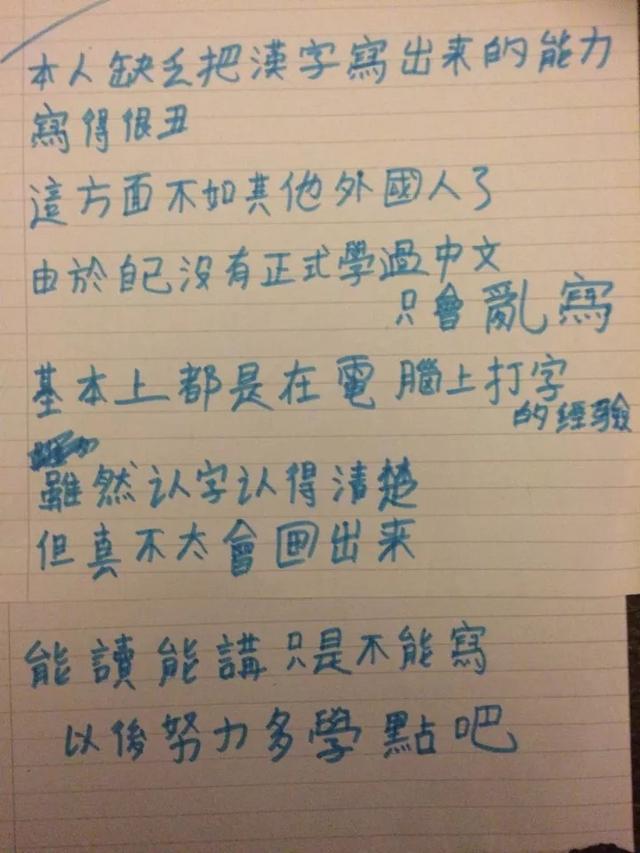 本人缺乏把漢字寫出来的能力
寫得很丑
這方面不如其他外國人了
由於自己沒有正式學過中文
只會亂寫
基本上都是在電腦上打字
的經驗
雖然认字认得清楚
但真不太會画出来
能讀能講只是不能寫
以後努力多學點吧